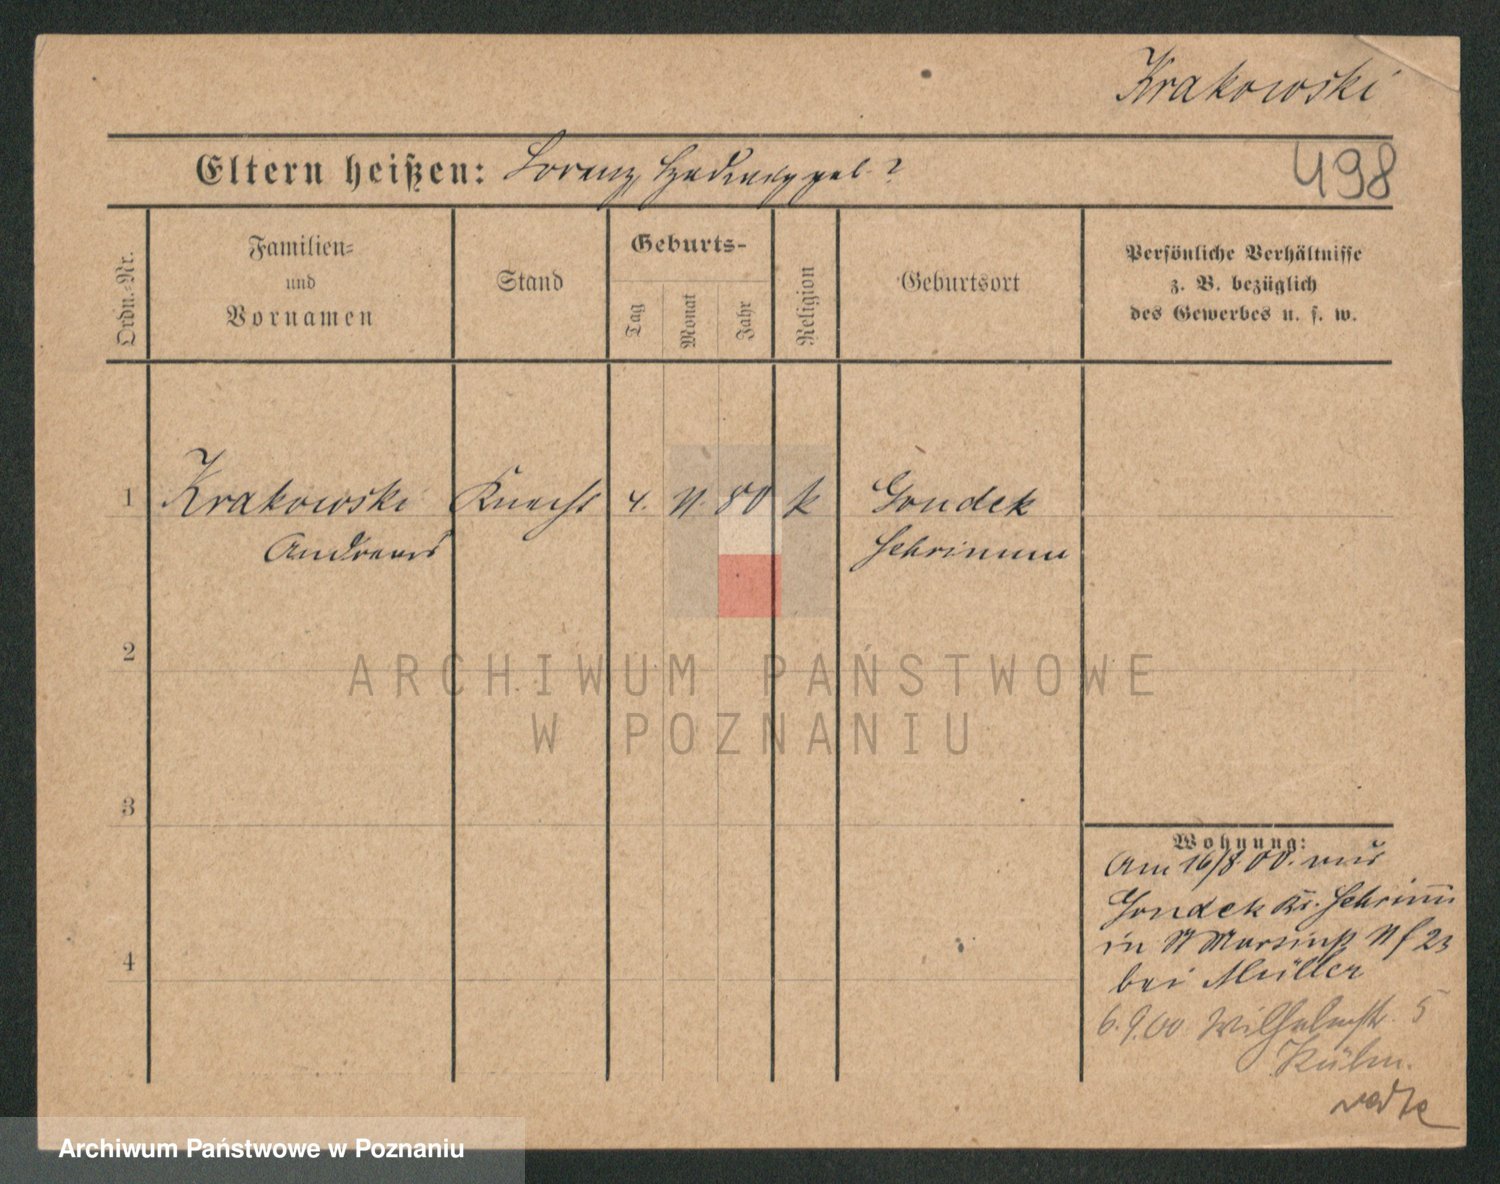 Krakowski
Eltern heißen: Lorenz, Hedwig geb. ?
498
Ordn.-Nr.
Familien-
und
Vornamen
Stand
Geburts-
Tag
Monat
Jahr
Religion
Geburtsort
Persönliche Verhältnisse
z. B. bezüglich
des Gewerbes u. s. w.
1 Krakowski Knecht 4. 11. 80 k Gondek
Andreas Schrimm
2
ARCHIWUM PAŃSTWOWE
W POZNANIU
3
Wohnung:
Am 16/8.00. aus
Gondek Kr. Schrimm
in St Martinstr. 23
4
bei Müller
6.9.00 Wilhelmstr. 5
Kühn.
Archiwum Państwowe w Poznaniu